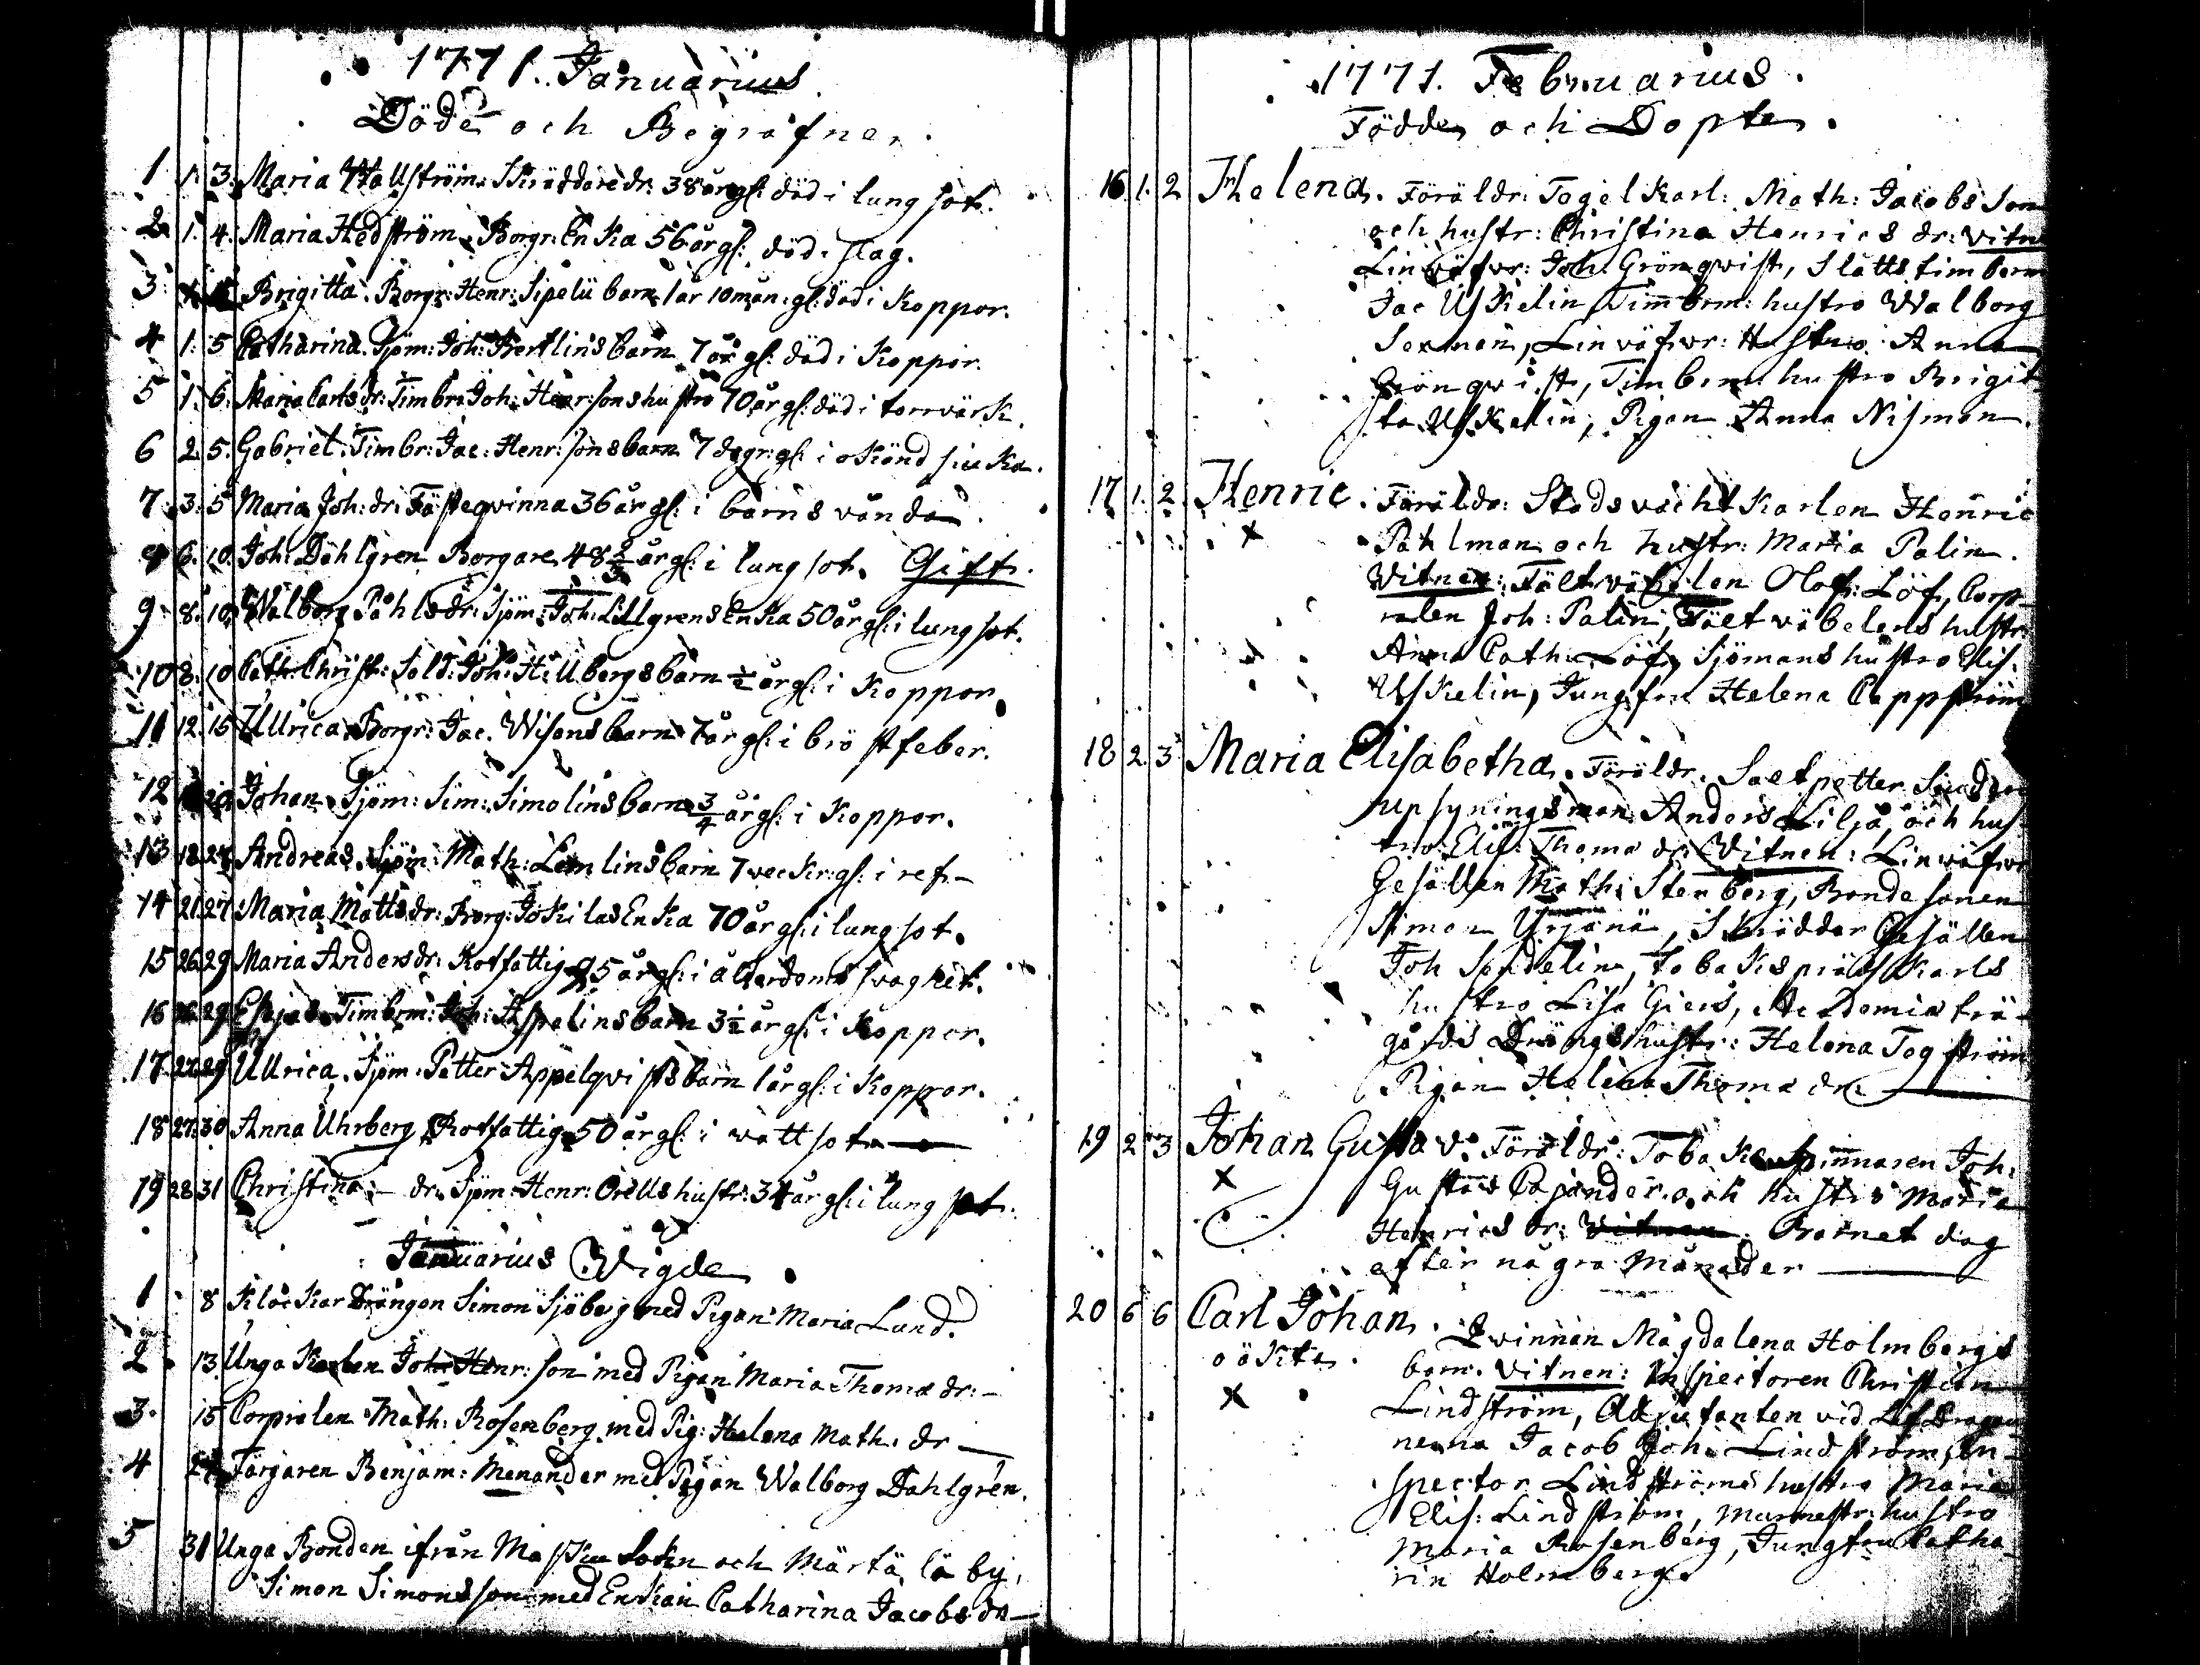 1771. Januarius
Döde och Begrafne.
1 1. 3. Maria Wallström. Skräddaredr: 38 år gl: död i lungsot.
2 1. 4. Maria Hedström. Borgr: Enka 56 år gl: död i slag.
3 Brigitta. Borgr: Henr: Sipelii barn 1 år 10 mån: gl: död i Koppor.
4 1. 5 Catharina. Sjöm: Joh: Bertlins barn 7 år gl: död i Koppor.
5 1. 6. Maria Carlsdr: Timbr: Joh: Henr:sons hustro 70 år gl: död i torrvärk.
6 2. 5. Gabriel. Timbr: Jac: Henr:sons barn 7 dagr: gl: i okänd siuka.
7 3. 5 Maria Joh:dr: Fästeqvinna 36 år gl: i barnsvånda.
8 6. 10. Joh: Dahlgren Borgare 48 2/3 år gl: i lungsot. Gift.
9 8. 10. Walborg Påhlsdr: Sjöm: Joh: Lillgrens Enka 50 år gl: i lungsot.
10 8. 10 Cath: Christ: Sold: Joh: Hillbergs barn 1/2 år gl: i Koppor.
11 12. 15 Ullrica. Borgr: Jac. Wisens barn 7 år gl: i bröstfeber.
12 20 Johan. Sjöm: Sim: Simolins barn 3/4 år gl: i Koppor.
13 18 24 Andreas. Sjöm: Math: Lemlins barn 7 veckr: gl: i ref.
14 21 27 Maria Mattsdr: Borg: Jokilas Enka 70 år gl: i lungsot.
15 26 29 Maria Andersdr: Rotfattig 95 år gl: i ålderdoms svaghet.
16 26 29 Timbrm: Joh: Aspelins barn 3 1/2 år gl: i Koppor.
17 27 29 Ullrica. Sjöm: Petter Appelqvists barn 1 år gl: i Koppor.
18 27. 30 Anna Uhrberg Rotfattig 50 år gl: i wattsot
19 28 31 Christina – dr: Sjöm: Henr: Orells hustr: 34 år gl: i lungsot.
Januarius Wigde
1 8 Klåckar Drängen Simon Sjöberg med Pigan Maria Lund.
2 13. Unga Karlen Joh: Henr:son med Pigan Maria Thomædr:
3. 15 Corpralen Math: Rosenberg med Pig: Helena Math:dr
4 24 Färgaren Benjam: Menander med Pigan Walborg Dahlgrén.
5 31 Unga Bonden ifrån Masku Sokn och Märtälä by,
Simon Simonsson med Enkan Catharina Jacobsdr
1771. Februarius.
Födde och Döpte.
16 1. 2 Helena. Föräldr: Togelkarl: Math: Jacobsson
och hustr: Christina Henricsdr: Vitn
Linväfvr: Joh: Grönqvist, Slåttstimberm
Jac Uskelin Timbrm: hustro Walborg
Sexman, Linväfvr: Hustro Anna
Grönqvist, Timbrm: hustro Brigit
ta Uskelin, Pigan Anna Nisman.
17 1. 2 Henric. Föräldr: Stadsvachtkarlen Henric
x Påhlman och hustr: Maria Palin.
Vitnen: Fältväbelen Olof Löf, Corp-
ralen Joh: Palin, Fältväbelens hustr:
Anna Cath: Löf, Sjömans hustro Elis.
Uskelin, Jungfru Helena Cappström
18 2. 3 Maria Elisabetha. Föräldr. Saltpetter Siuder
upsyningsman Anders Lilja, och hus-
tro Elis: Thomædr: Vitnen: Linväfvr
Gesällen Math: Stenberg, Bondesonen
Simon Yrjänä, Skräddar Gesällen
Joh Sundelin, Tobakspräss Karls
hustro Lisa Giers, Academiæ trä-
gårds Drängs hustr: Helena Tegström
Pigan Helena Thomædr:
19 2 3 Johan Gustav. Föräldr: Tobaks Spinnaren Joh:
x Gustav Cajander och hustro Maria
Henricsdr: Vitnen. Barnet dog
efter några Månader
20 6 6 Carl Johan. Qvinnan Magdalena Holmbergs
oäkte. barn. Vitnen: Inspectoren Christian
x Lindström, Adjutanten vid LifDragou
nerna Jacob Joh: Lindström, In-
spector Lindströms hustro Maria
Elis: Lindström, Murmestr: hustro
Maria Rosenberg, Jungfru Catha-
rin Holmberg.